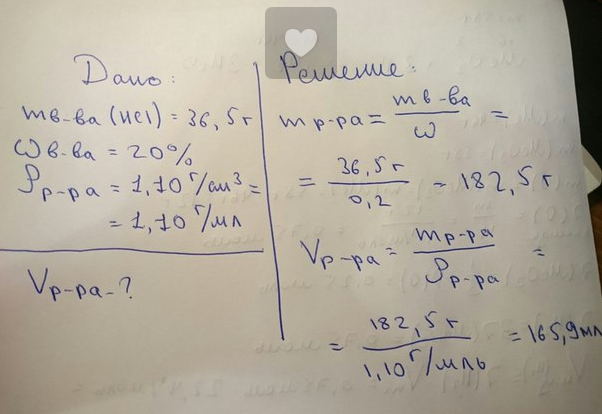 Дано:
m в-ва (HCl) = 36,5 г
ω в-ва = 20%
ρ р-ра = 1,10 г/см³ =
= 1,10 г/мл
V р-ра - ?
Решение:
m р-ра = m в-ва / ω =
= 36,5 г / 0,2 = 182,5 г
V р-ра = m р-ра / ρ р-ра =
= 182,5 г / 1,10 г/мль = 165,9 мл